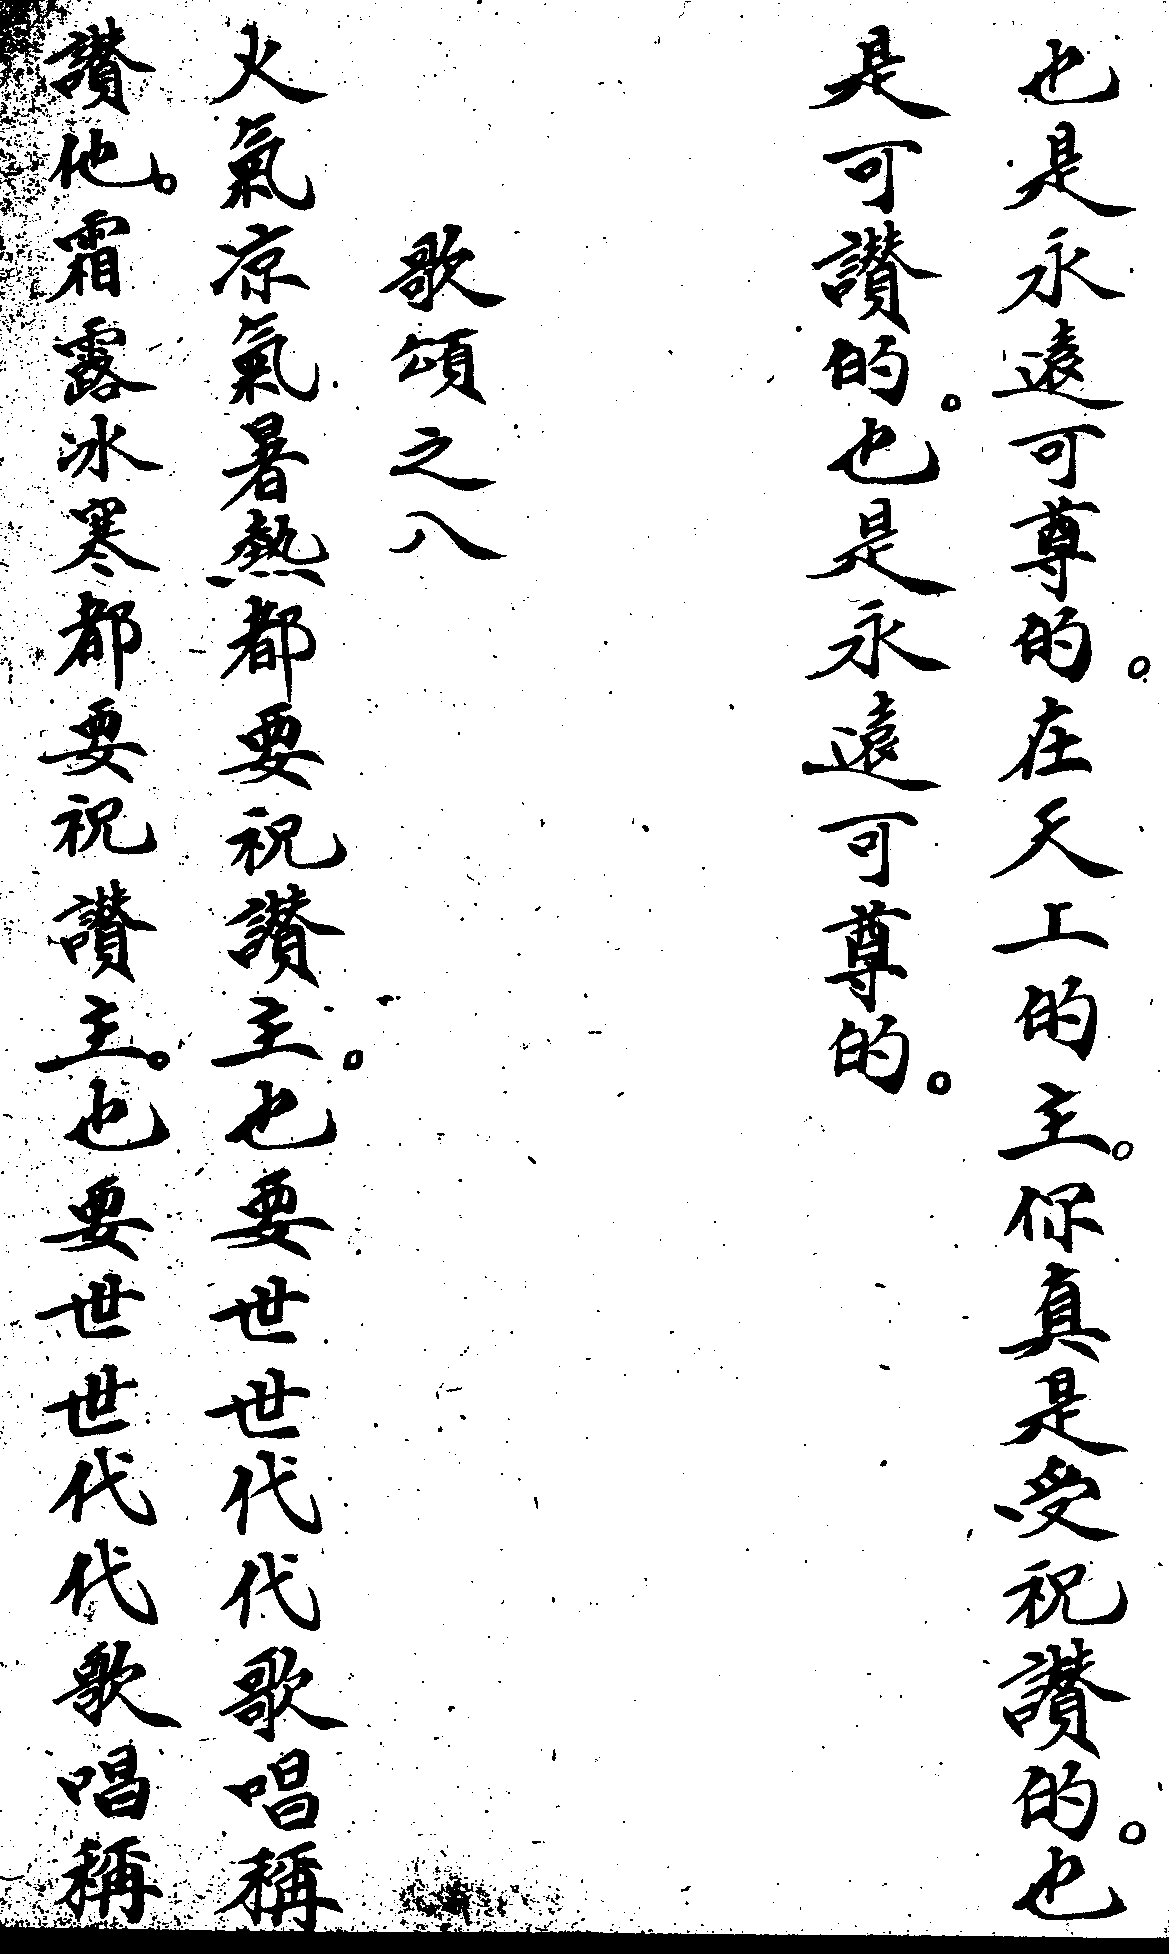 也是永遠可尊的。在天工的主。你真是受祝讚的。也
是可讚的。也是永遠可尊的。
歌頌之八
火氣凉氣暑熱都要祝讚主。也要世世代代歌唱稱
讚他。霜露冰寒都要祝讚主。也要世世代代歌唱稱